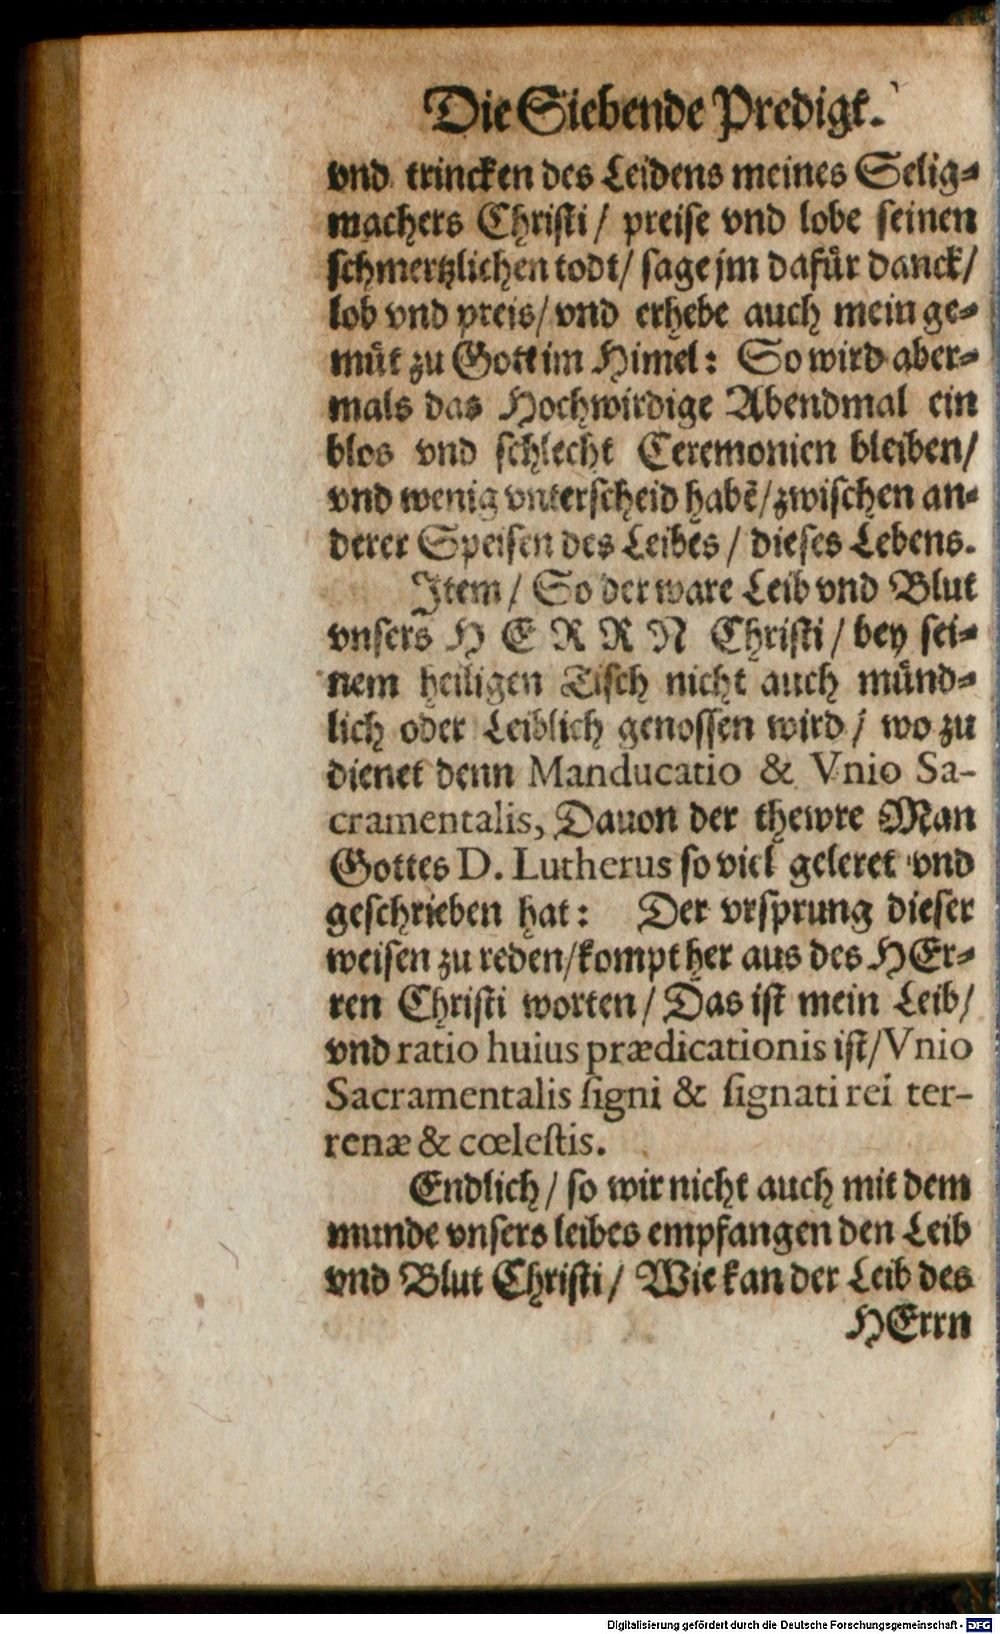 Die Siebende Predigt.
vnd trincken des Leidens meines Selig⸗
machers Christi / preise vnd lobe seinen
schmertzlichen todt / sage jm dafür danck /
lob vnd preis / vnd erhebe auch mein ge⸗
müt zu Gott im Himel : So wird aber⸗
mals das Hochwirdige Abendmal ein
blos vnd schlecht Ceremonien bleiben /
vnd wenig vnterscheid habē / zwischen an⸗
derer Speisen des Leibes / dieses Lebens.
Item / So der ware Leib vnd Blut
vnsers HERRN Christi / bey sei⸗
nem heiligen Tisch nicht auch münd⸗
lich oder Leiblich genossen wird / wo zu
dienet denn Manducatio & Vnio Sa-
cramentalis, Dauon der thewre Man
Gottes D. Lutherus so viel geleret vnd
geschrieben hat : Der vrsprung dieser
weisen zu reden / kompt her aus des HEr⸗
ren Christi worten / Das ist mein Leib /
vnd ratio huius prædicationis ist / Vnio
Sacramentalis signi & signati rei ter-
renæ & cœlestis.
Endlich / so wir nicht auch mit dem
munde vnsers leibes empfangen den Leib
vnd Blut Christi / Wie kan der Leib des
HErrn
Digitalisierung gefördert durch die Deutsche Forschungsgemeinschaft - DFG